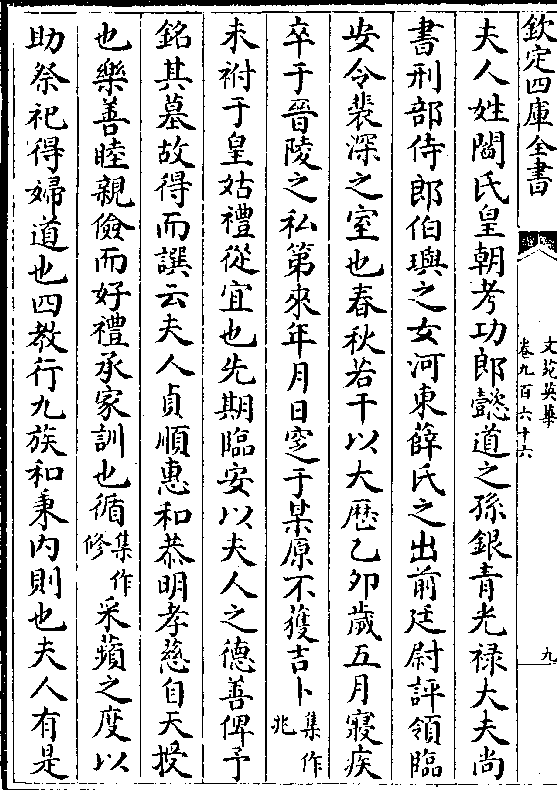 欽定四庫全書
文苑英華
卷九百六十六
九
夫人姓閻氏皇朝考功郎懿道之孫銀青光禄大夫尚
書刑部侍郎伯璵之女河東薛氏之出前廷尉評領臨
安令裴深之室也春秋若干以大厯乙夘歲五月寢疾
卒于晉陵之私第來年月日窆于某原不獲吉卜集作兆
未祔于皇姑禮從宜也先期臨安以夫人之德善俾予
銘其墓故得而譔云夫人貞順惠和恭明孝慈自天授
也樂善睦親儉而好禮承家訓也循集作修采蘋之度以
助祭祀得婦道也四教行九族和秉内則也夫人有是